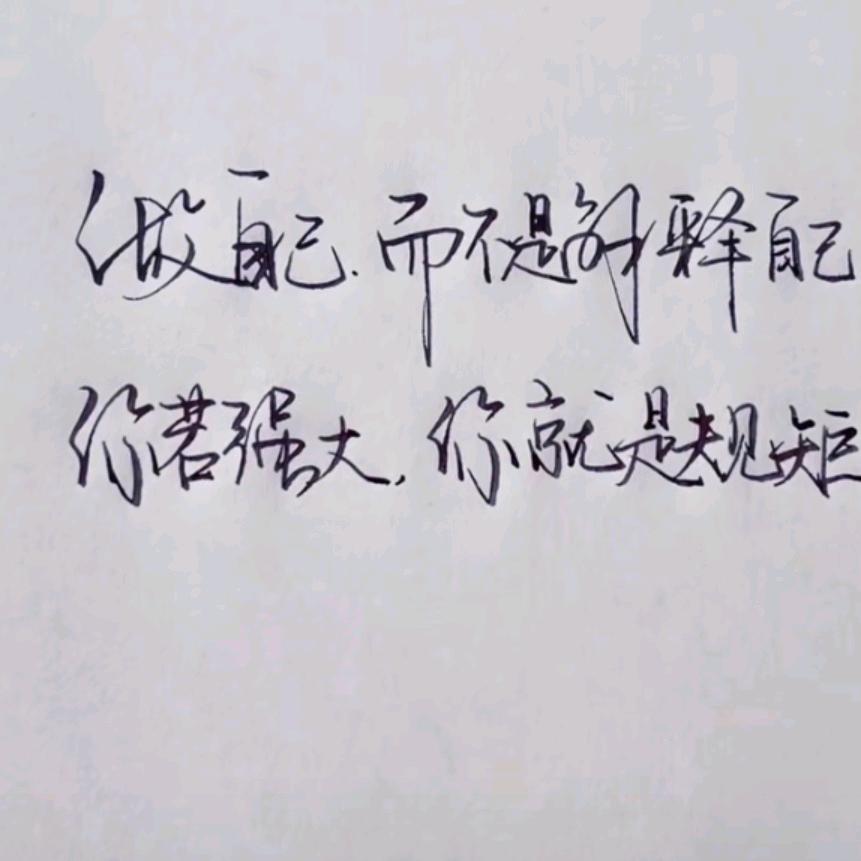 做自己.而不是解释自己
你若强大,你就是规矩